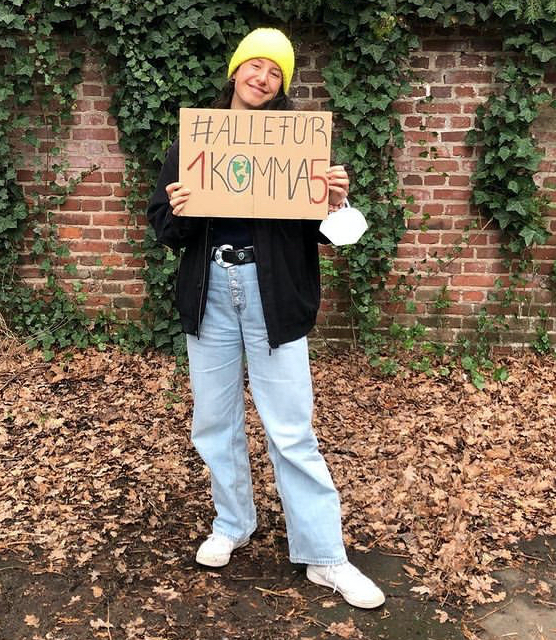 #ALLEFÜR
1KOMMA5